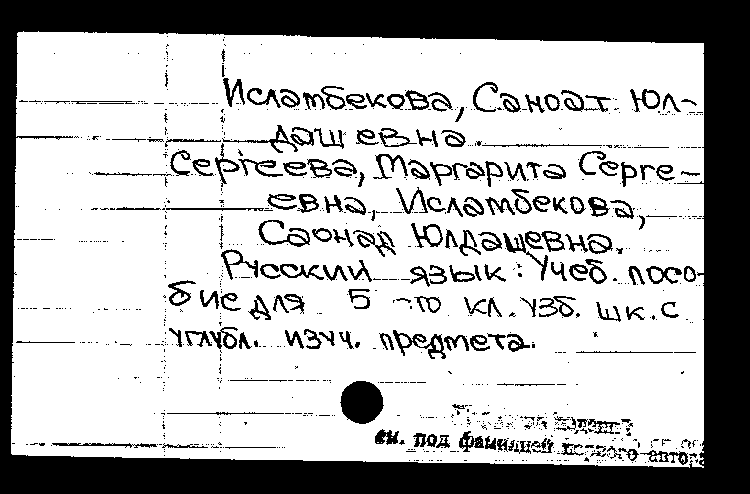 Исламбекова, Саноат Юл-
дашевна.
Сергеева, Маргарита Серге-
евна, Исламбекова,
Саонад Юлдашевна.
Русский язык: Учеб. посо-
бие для 5-го кл. узб. шк. с
углубл. изуч. предмета.
см. под фамилией первого автора